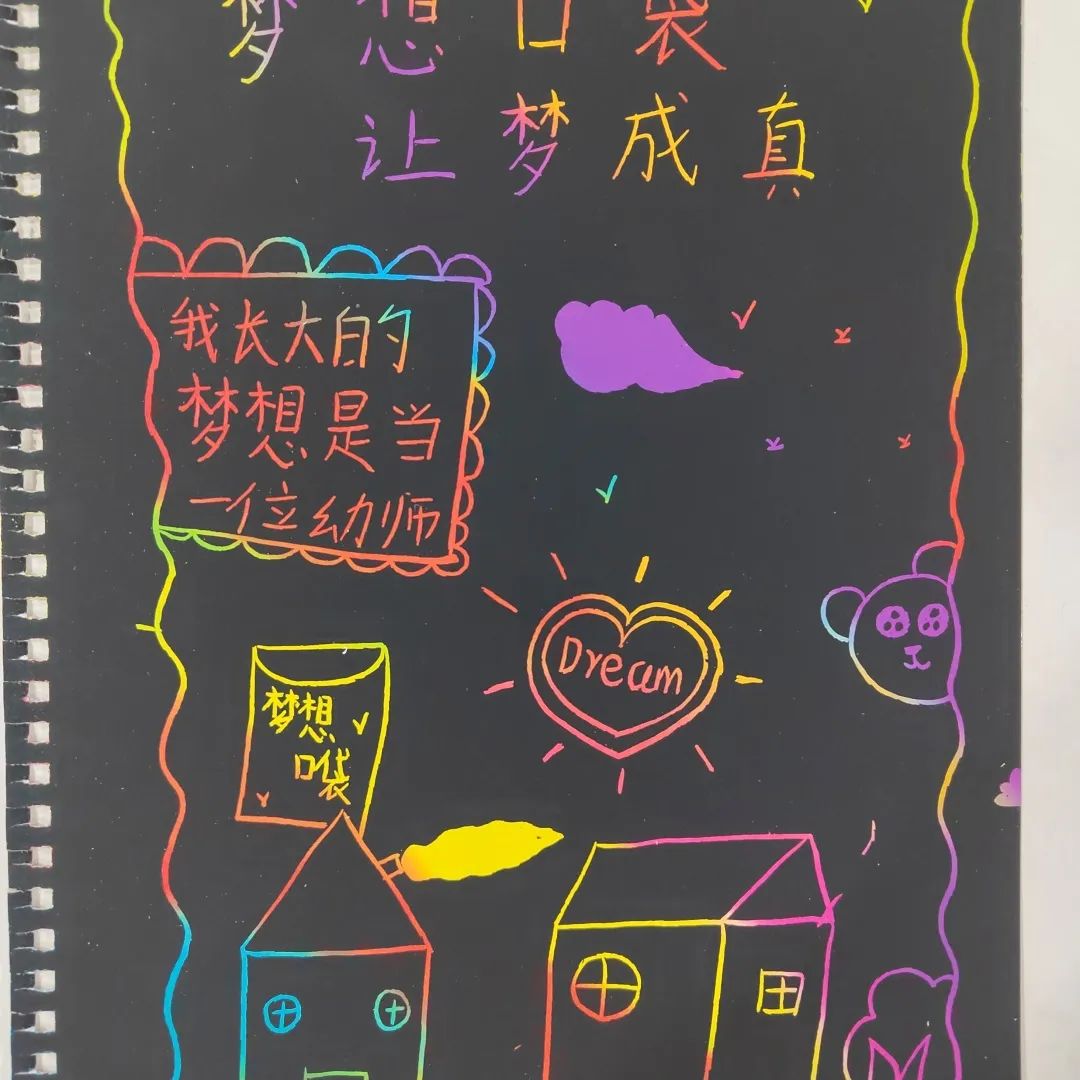 梦想口袋
让梦成真
我长大的
梦想是当
一位幼师
Dream
梦想
口袋